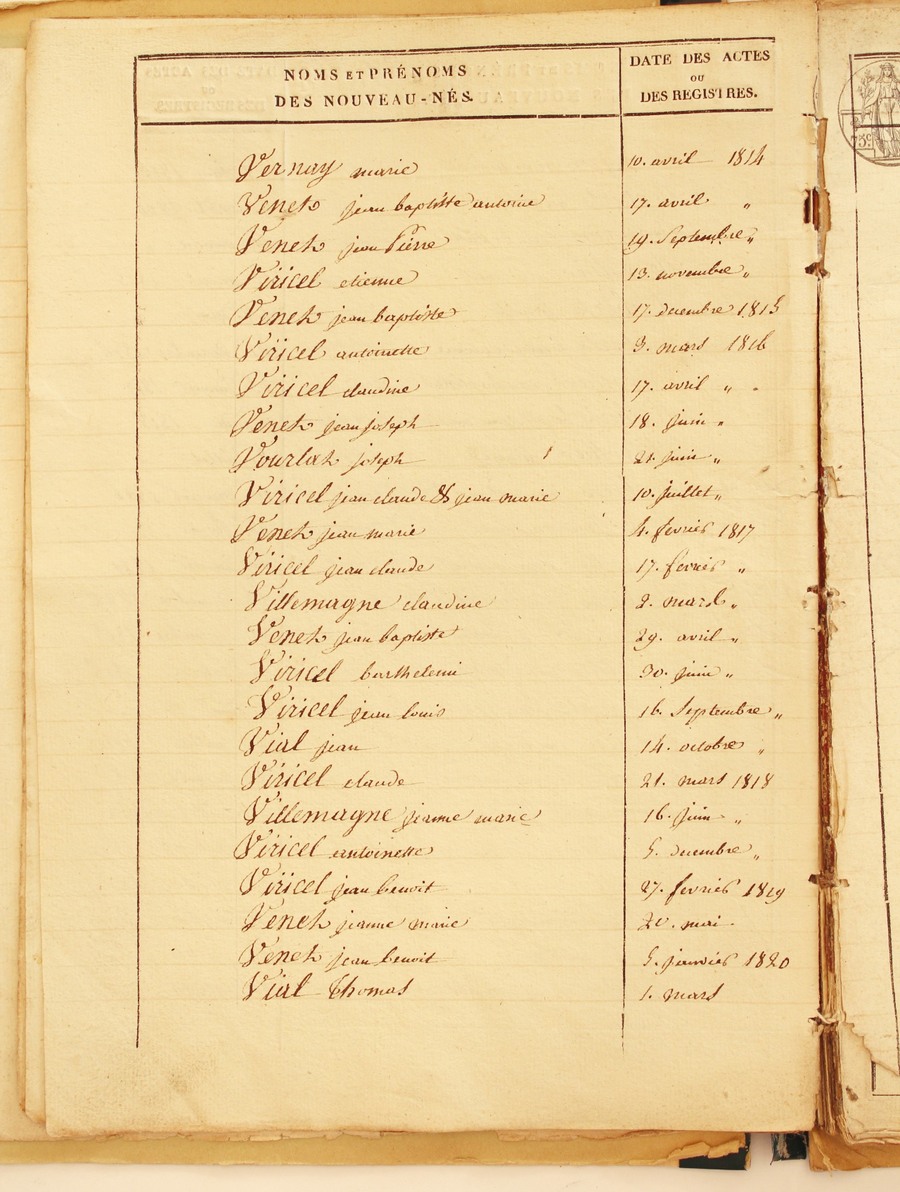 NOMS ET PRÉNOMS
DES NOUVEAU-NÉS.
DATE DES ACTES
OU
DES REGISTRES.
Vernay marie 10. avril 1814
Venet jean baptiste antoine 17. avril "
Venet jean Pierre 19. Septembre "
Viricel etienne 13. novembre "
Venet jean baptiste 17. decembre 1815
Viricel antoinette 3. mars 1816
Viricel claudine 17. avril "
Venet jean joseph 18. juin "
Vourlat joseph 21. juin "
Viricel jean claude & jean marie 10. juillet "
Venet jean marie 4. fevrier 1817
Viricel jean claude 17. fevrier "
Villemagne claudine 2. mars "
Venet jean baptiste 29. avril "
Viricel barthelemi 30. juin "
Viricel jean louis 16. Septembre "
Vial jean 14. octobre "
Viricel claude 21. mars 1818
Villemagne jeanne marie 16. juin "
Viricel antoinette 5. decembre "
Viricel jean benoit 27. fevrier 1819
Venet jeanne marie 20. mai
Venet jean benoit 5. janvier 1820
Vial Thomas 1. mars